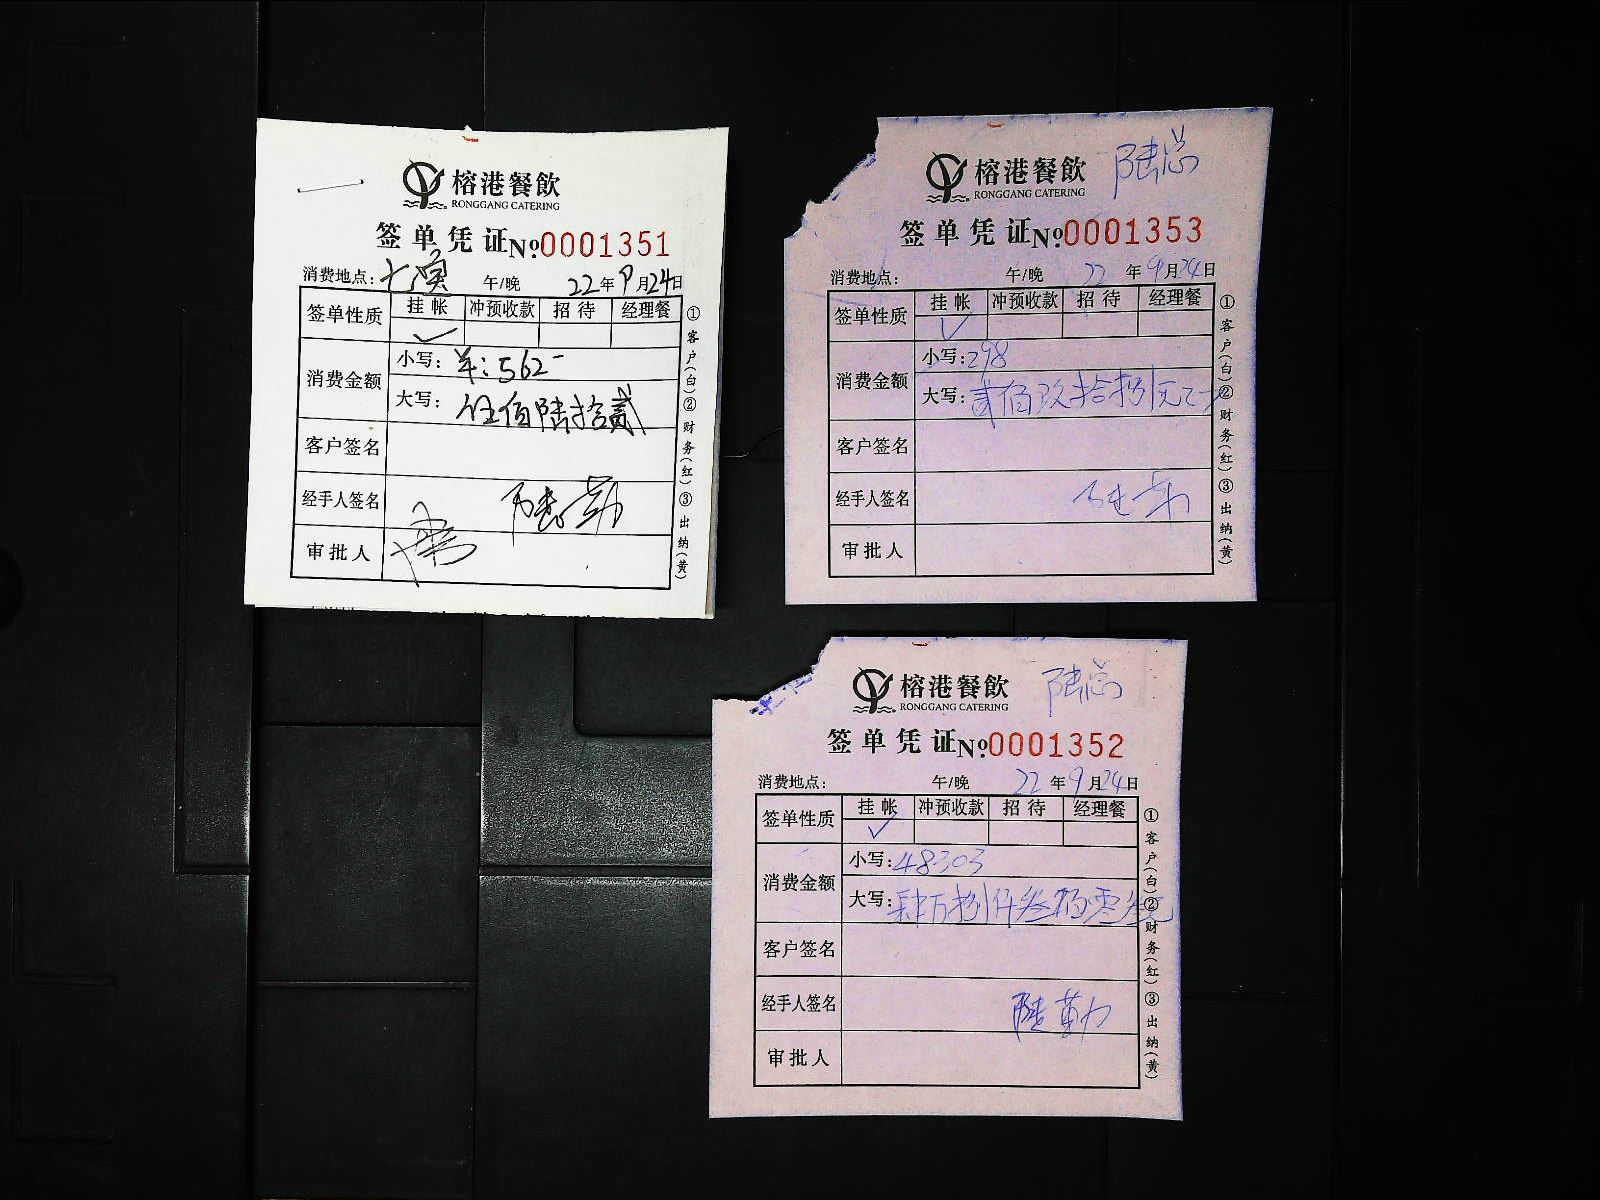 榕港餐飲
RONGGANG CATERING
签单凭证 №0001351
消费地点: 午/晚 22年9月24日
签单性质 挂帐 冲预收款 招待 经理餐
✓
消费金额 小写: 羊:562-
大写: 伍佰陆拾贰
客户签名
经手人签名 陆勤
审批人
①客户(白)②财务(红)③出纳(黄)
榕港餐飲 陆总
RONGGANG CATERING
签单凭证 №0001353
消费地点: 午/晚 22年9月24日
签单性质 挂帐 冲预收款 招待 经理餐
✓
消费金额 小写: 298
大写: 贰佰玖拾捌元
客户签名
经手人签名 陆勤
审批人
①客户(白)②财务(红)③出纳(黄)
榕港餐飲 陆总
RONGGANG CATERING
签单凭证 №0001352
消费地点: 午/晚 22年9月24日
签单性质 挂帐 冲预收款 招待 经理餐
✓
消费金额 小写: 48303
大写: 肆万捌仟叁佰零叁元
客户签名
经手人签名 陆勤
审批人
①客户(白)②财务(红)③出纳(黄)